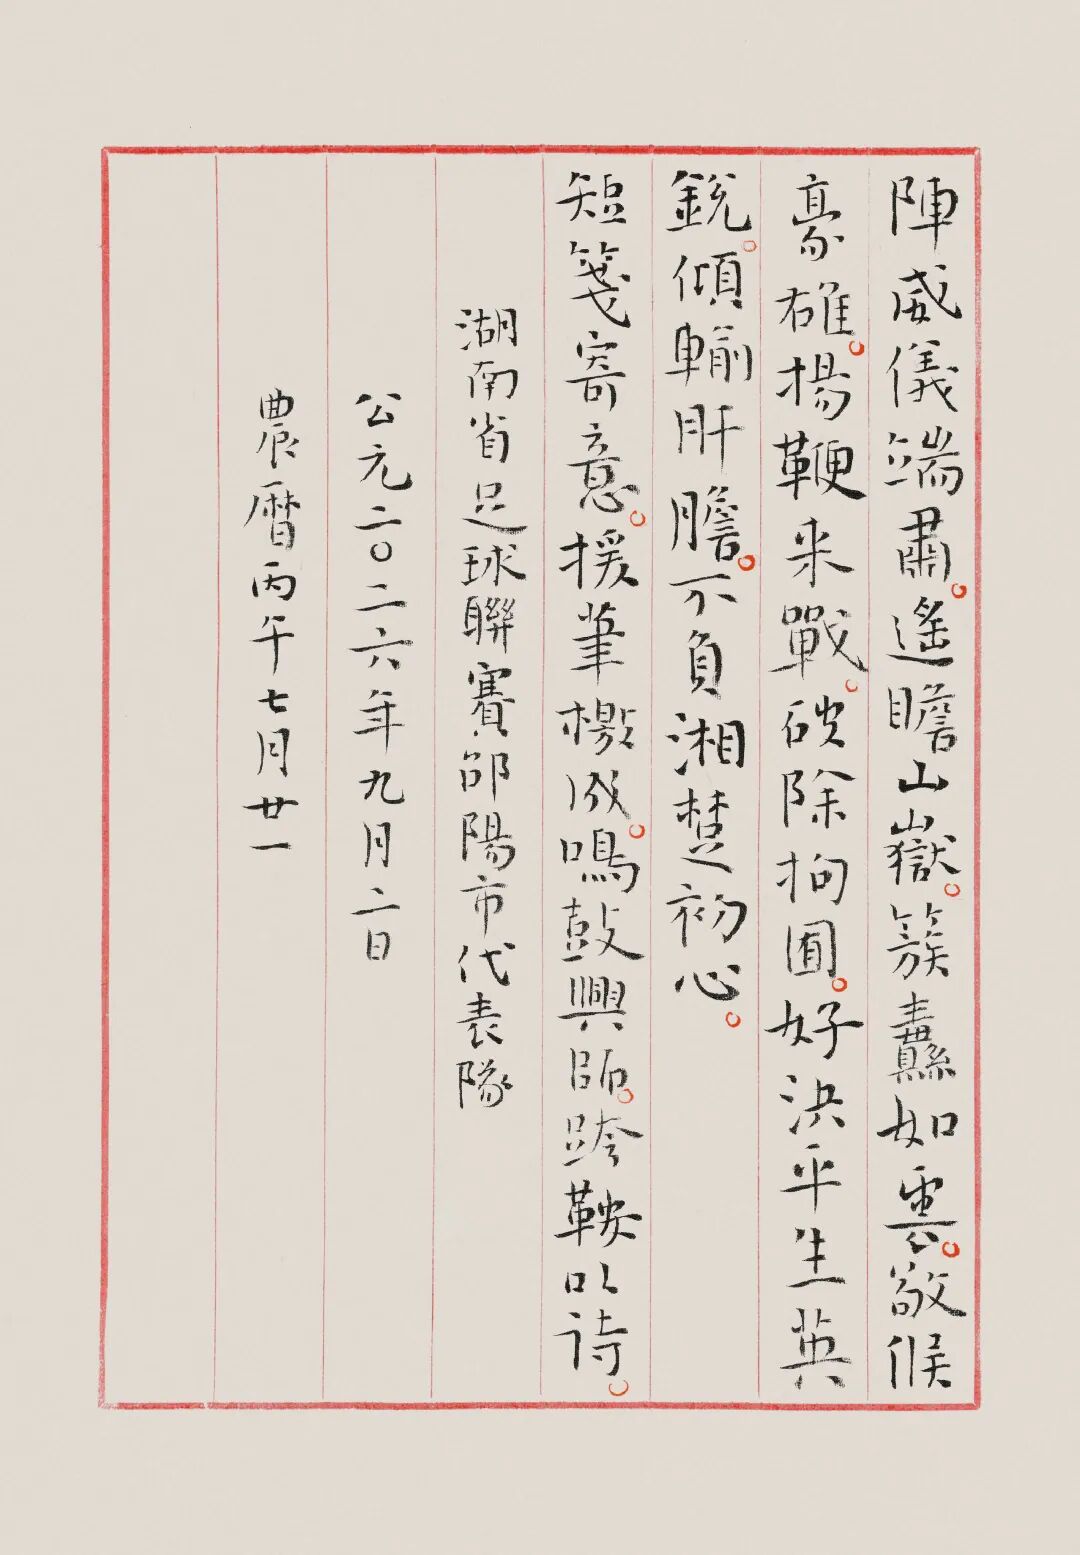 陣威儀端肅。遙瞻山嶽。簇纛如雲。敬候
豪雄。揚鞭来戰。破除拘囿。好決平生英
銳。傾輸肝膽。不負湘楚初心。
短箋寄意。援筆檄成。鳴鼓興師。跨鞍以詩。
湖南省足球聯賽邵陽市代表隊
公元二〇二六年九月二日
農曆丙午七月廿一